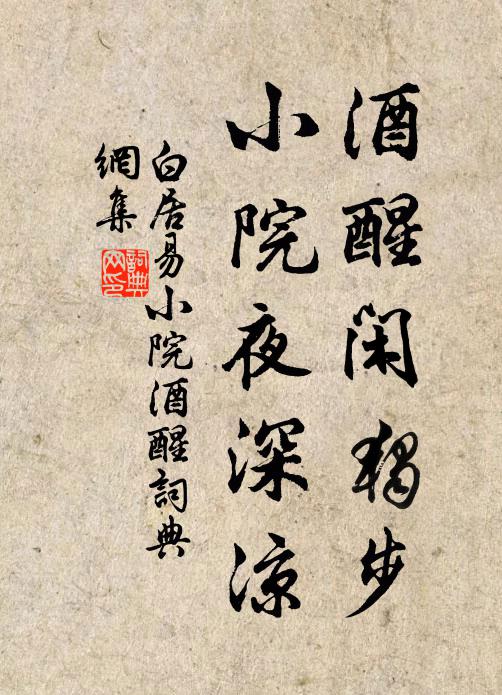 酒醒闲獨步
小院夜深凉
白居易小院酒醒詞典
網集
詞典
网印